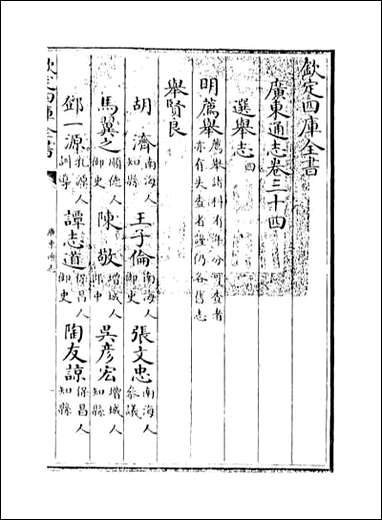 欽定四庫全書
廣東通志卷三十四
選舉志四
明薦舉薦舉諸科有年分可查者
亦有失查者謹仍各舊志
舉賢良
胡濟南海人知縣 王子倫南海人御史 張文忠南海人參議
馬翼之順德人御史 陳敬增城人郎中 吳彥宏增城人知縣
鄧一源乳源人訓導 譚志道保昌人御史 陶友諒保昌人知縣
欽定四庫全書
廣東通志